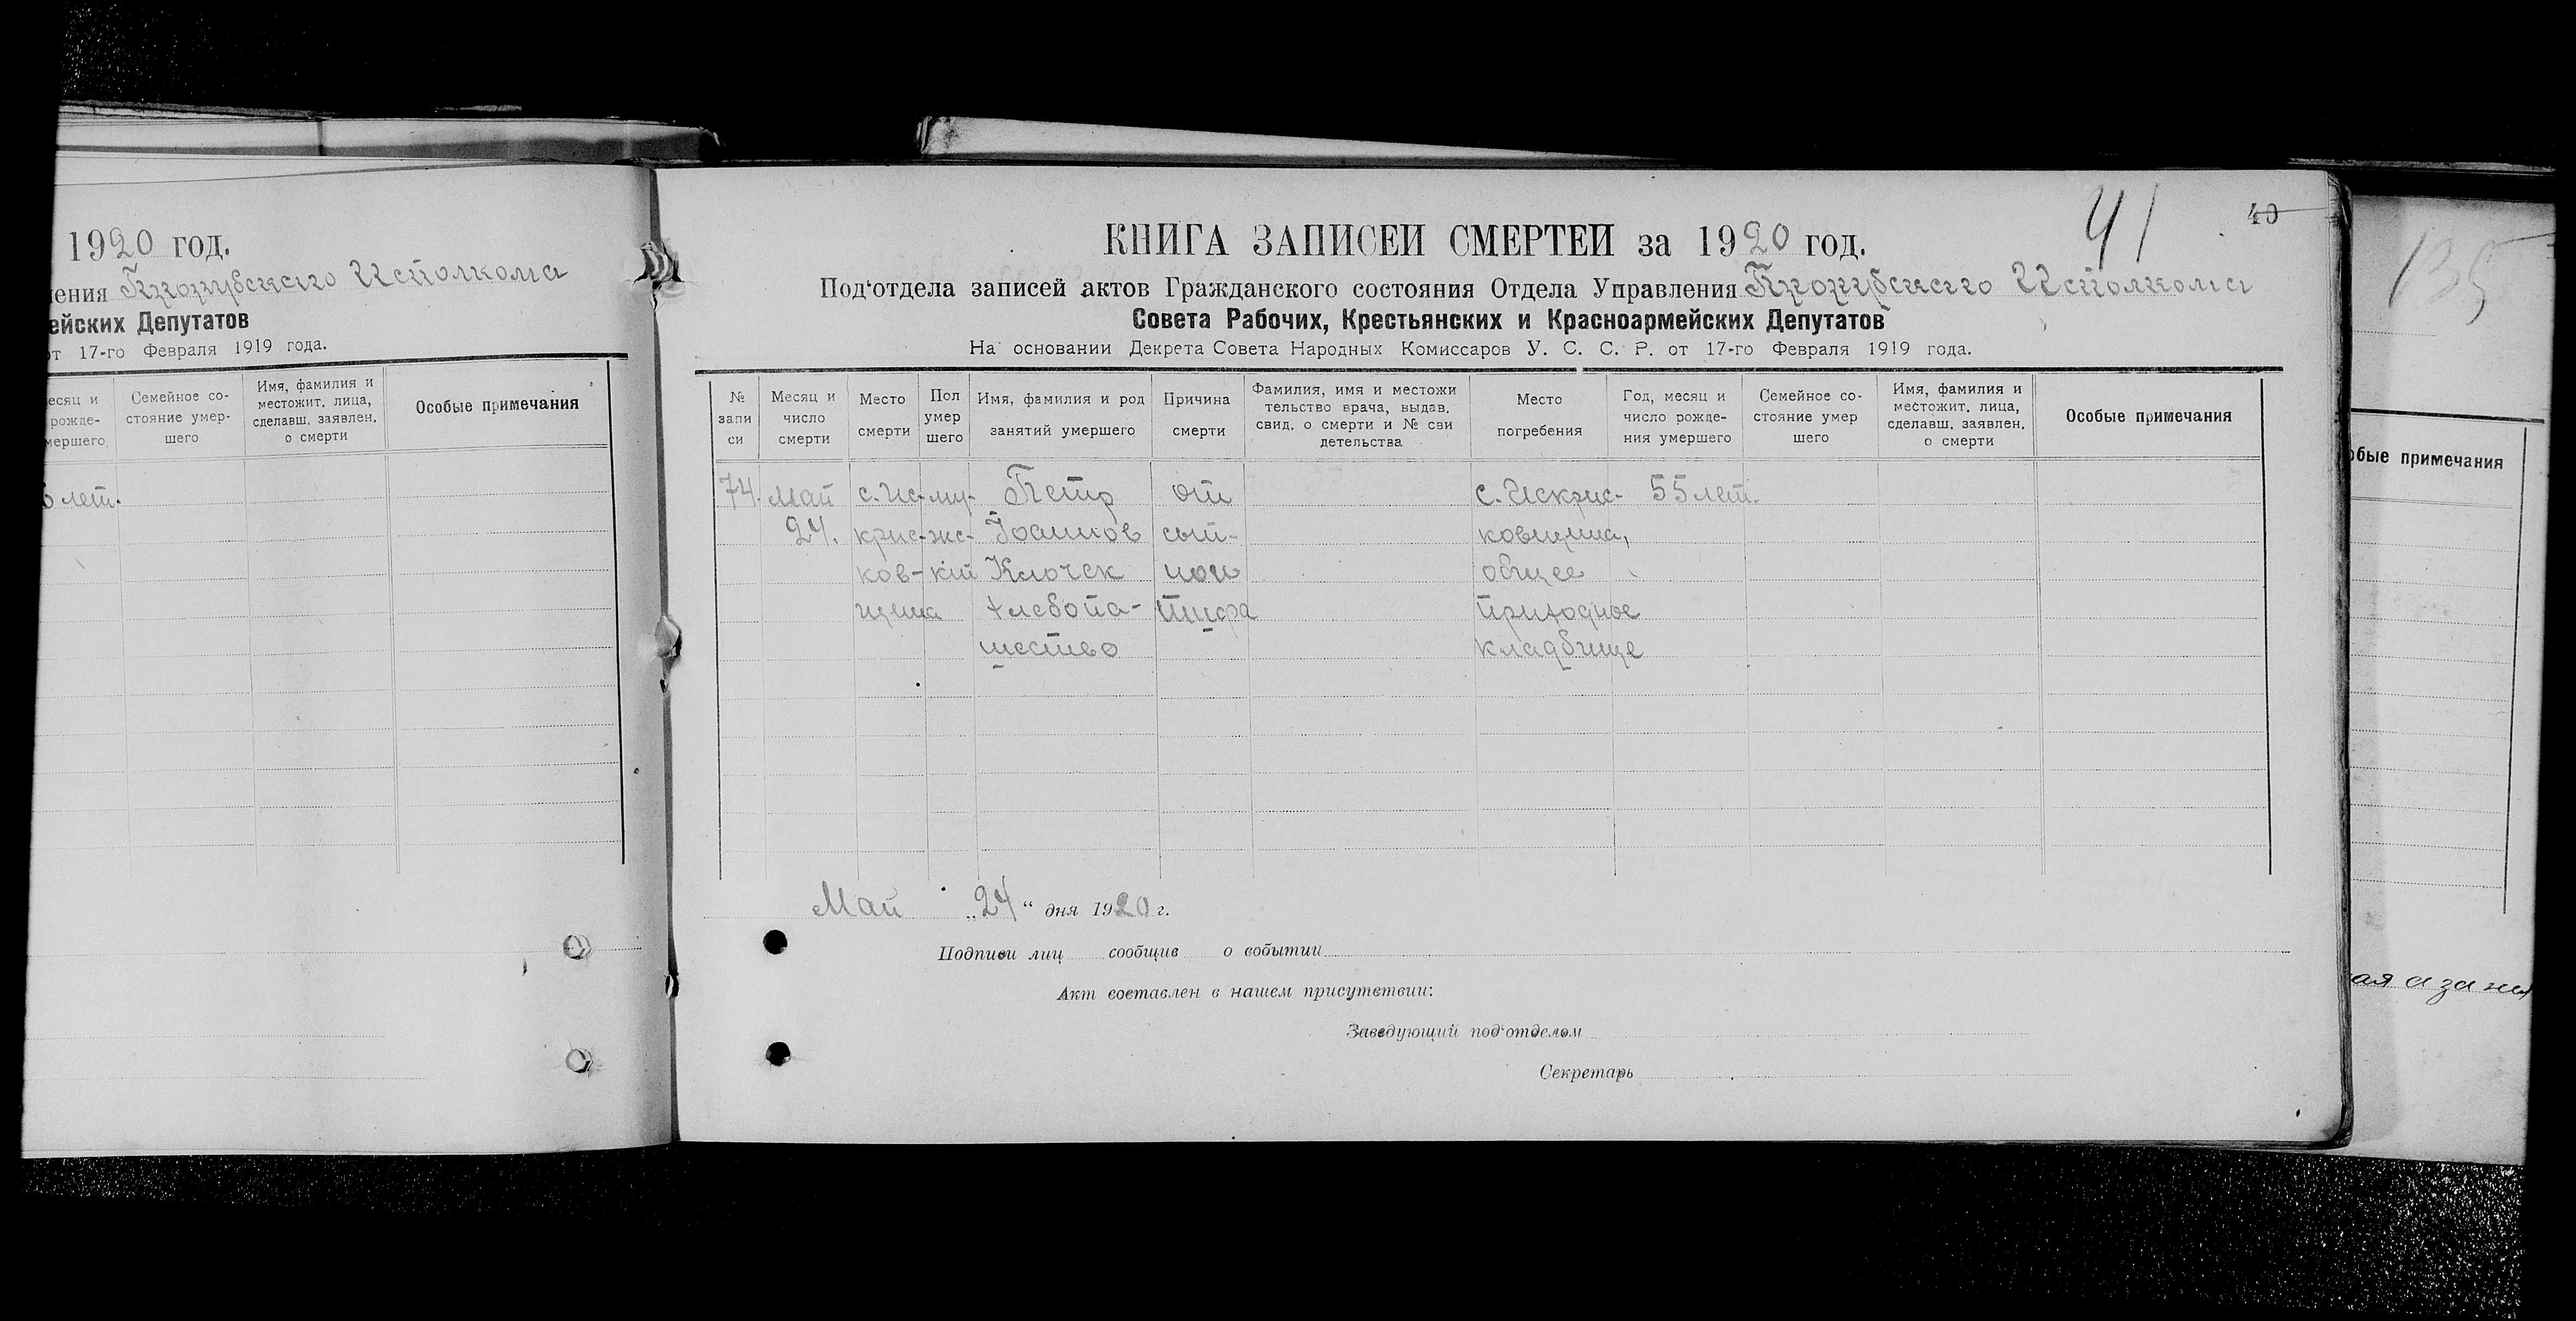 1920 год.
ения Исполкома
ейских Депутатов
от 17-го Февраля 1919 года.
есяц и рожде- мершего
Семейное со- стояние умер- шего
Имя, фамилия и местожит. лица, сделавш. заявлен. о смерти
Особые примечания
6 лет.
41
40
КНИГА ЗАПИСЕЙ СМЕРТЕЙ за 1920 год.
Под‘отдела записей актов Гражданского состояния Отдела Управления Исполкома
Совета Рабочих, Крестьянских и Красноармейских Депутатов
На основании Декрета Совета Народных Комиссаров У. С. С. Р. от 17-го Февраля 1919 года.
№ запи си
Месяц и число смерти
Место смерти
Пол умер шего
Имя, фамилия и род занятий умершего
Причина смерти
Фамилия, имя и местожи тельство врача, выдав. свид. о смерти и № сви детельства
Место погребения
Год, месяц и число рожде- ния умершего
Семейное со- стояние умер шего
Имя, фамилия и местожит. лица, сделавш. заявлен. о смерти
Особые примечания
74. Май с. Ис- му- Петр от с. Искрис- 55 лет.
24. крис- жс- Іоаннов сып- ковщина,
ков- кій Клочек ного общее
щина хлебопа- тифа приходное
шество кладбище
Май „24“ дня 1920 г.
Подписи лиц сообщив о событии
Акт составлен в нашем присутствии:
Заведующий под‘отделом
Секретарь
135
обые примечания
ая а за не